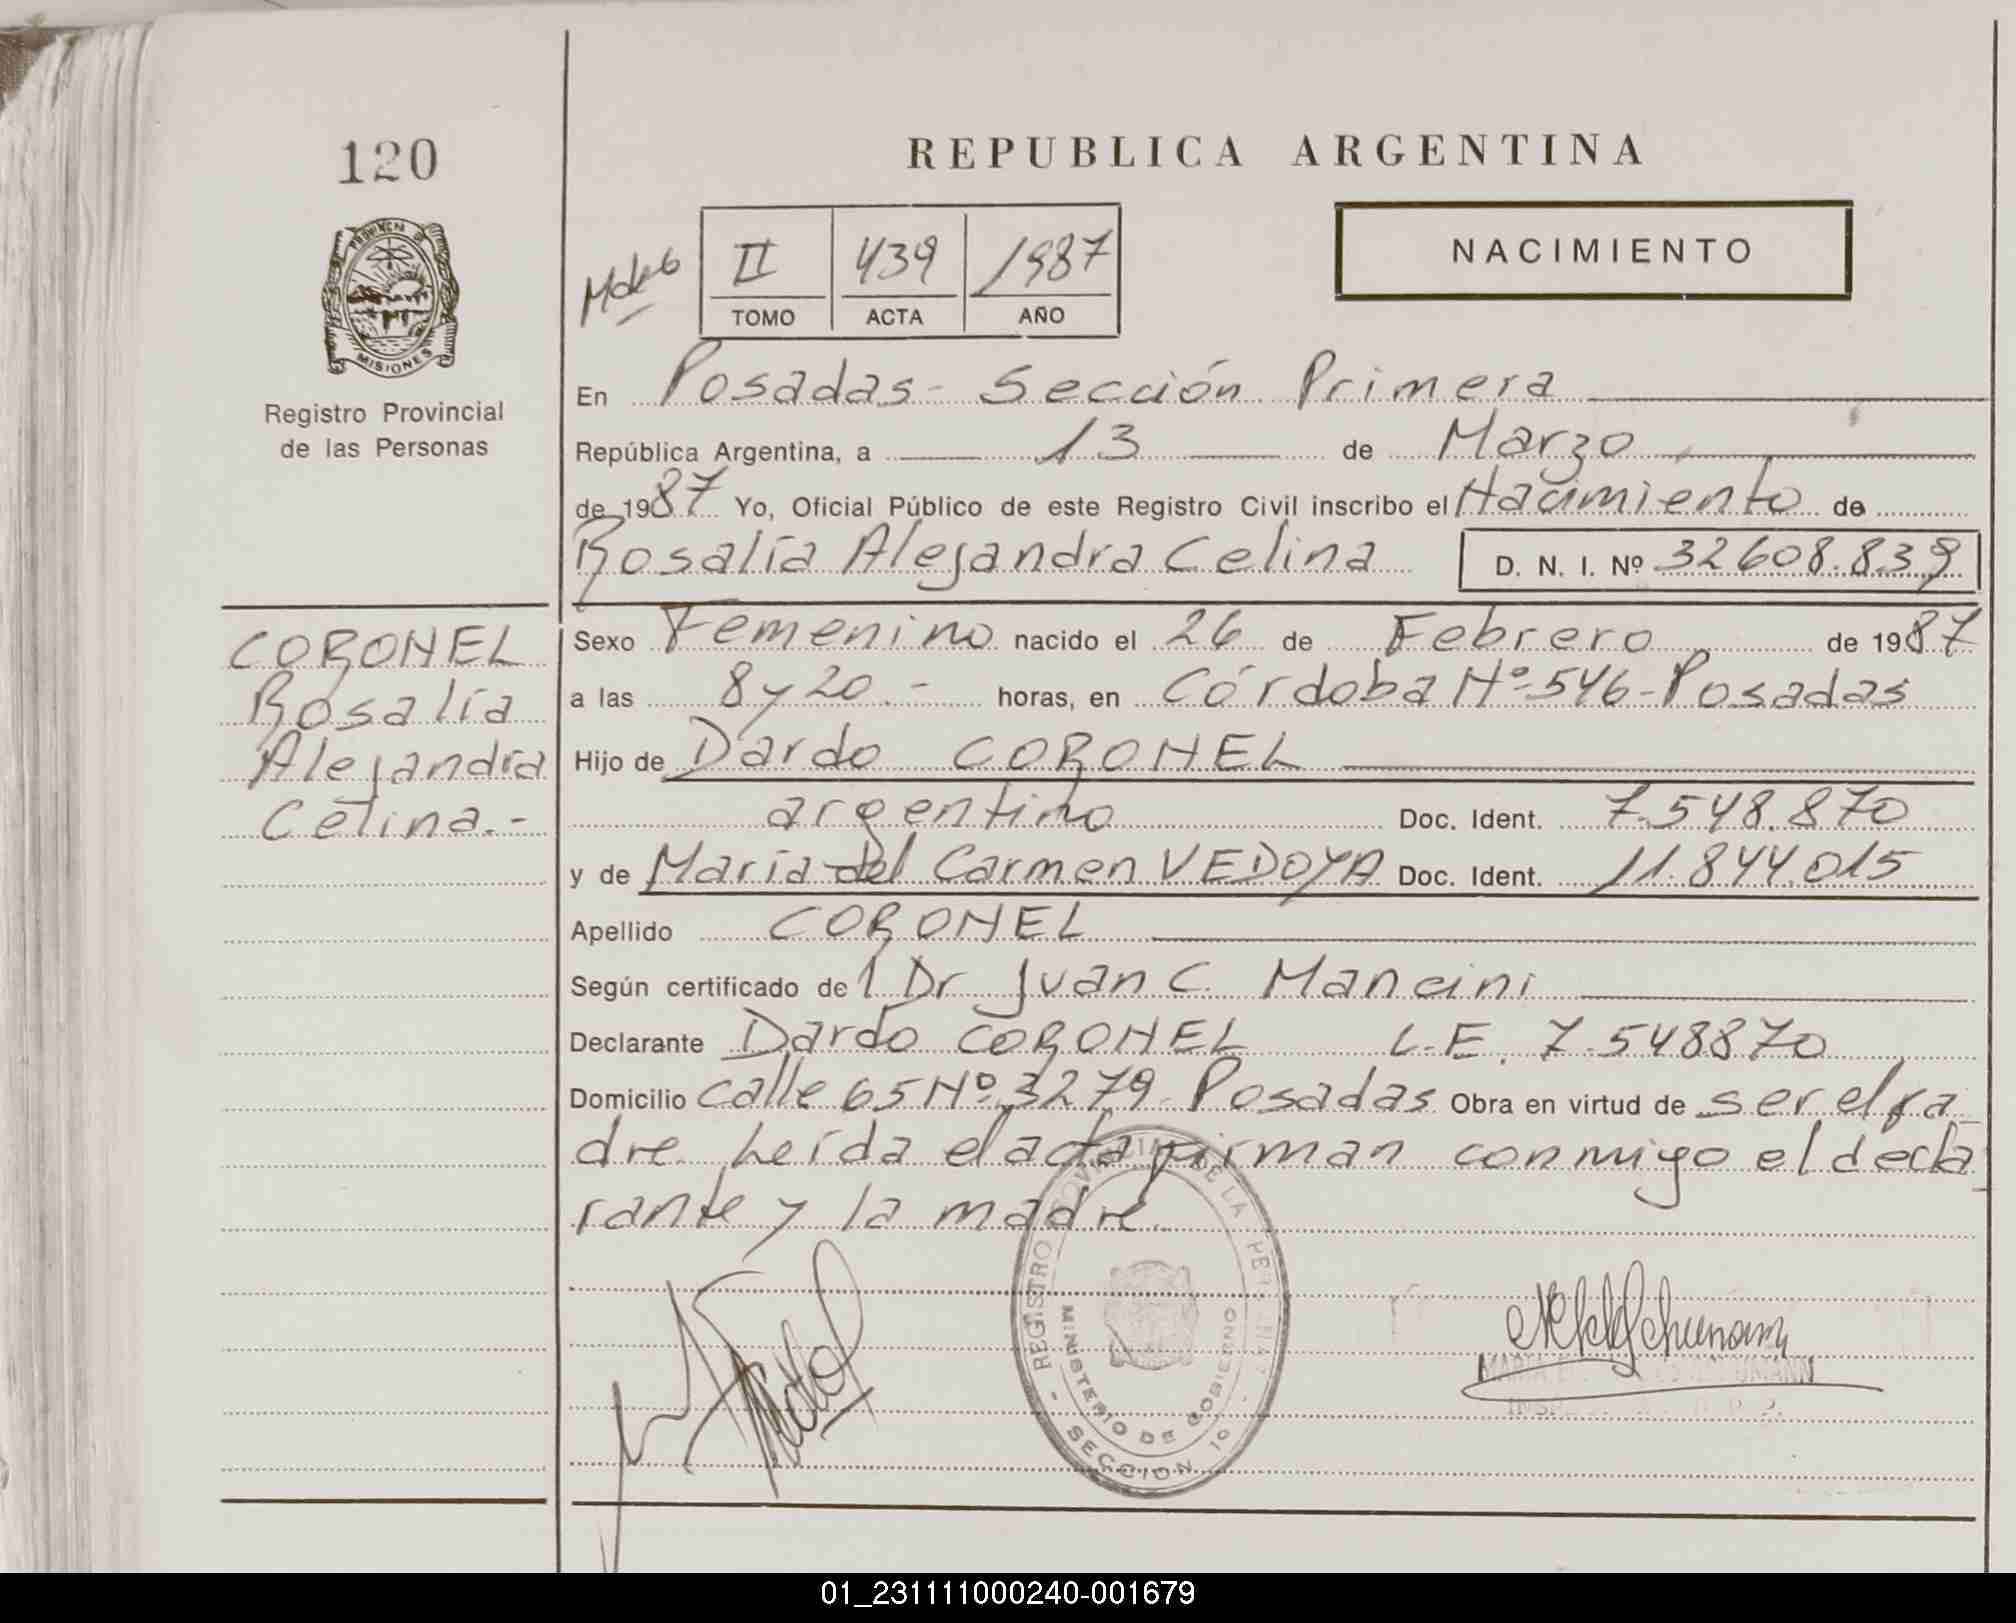 120
REPUBLICA ARGENTINA
PROVINCIA DE
MISIONES
Registro Provincial
de las Personas
II 439 1987
TOMO ACTA AÑO
NACIMIENTO
En Posadas - Sección Primera
República Argentina, a 13 de Marzo
de 1987 Yo, Oficial Público de este Registro Civil inscribo el Nacimiento de
Rosalía Alejandra Celina D. N. I. Nº 32608.839
CORONEL
Rosalía
Alejandra
Celina.-
Sexo Femenino nacido el 26 de Febrero de 1987
a las 8 y 20.- horas, en Córdoba Nº 546 - Posadas
Hijo de Dardo CORONEL
argentino Doc. Ident. 7.548.870
y de María del Carmen VEDOYA Doc. Ident. 11.844.015
Apellido CORONEL
Según certificado del Dr. Juan C. Mancini
Declarante Dardo CORONEL L.E. 7.548870
Domicilio calle 65 Nº 3279 - Posadas Obra en virtud de ser el pa
dre. Leída el acta firman conmigo el decla
rante y la madre.
REGISTRO PROVINCIAL DE LAS PERSONAS
MINISTERIO DE GOBIERNO
- SECCION 1º -
01_231111000240-001679